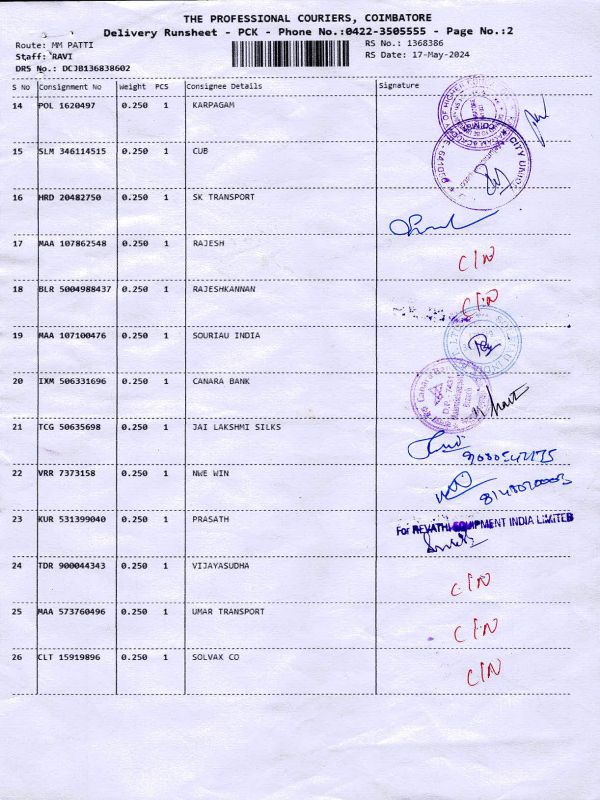 THE PROFESSIONAL COURIERS, COIMBATORE
Delivery Runsheet - PCK - Phone No.:0422-3505555 - Page No.:2
Route: MM PATTI RS No.: 1368386
Staff: RAVI RS Date: 17-May-2024
DRS No.: DCJB136838602
S No Consignment No Weight PCS Consignee Details Signature
14 POL 1620497 0.250 1 KARPAGAM
15 SLM 346114515 0.250 1 CUB
16 HRD 20482750 0.250 1 SK TRANSPORT
17 MAA 107862548 0.250 1 RAJESH C/N
18 BLR 5004988437 0.250 1 RAJESHKANNAN C/N
19 MAA 107100476 0.250 1 SOURIAU INDIA
20 IXM 506331696 0.250 1 CANARA BANK
21 TCG 50635698 0.250 1 JAI LAKSHMI SILKS
22 VRR 7373158 0.250 1 NWE WIN
23 KUR 531399040 0.250 1 PRASATH For REVATHI EQUIPMENT INDIA LIMITED
24 TDR 900044343 0.250 1 VIJAYASUDHA C/N
25 MAA 573760496 0.250 1 UMAR TRANSPORT C/N
26 CLT 15919896 0.250 1 SOLVAX CO C/N